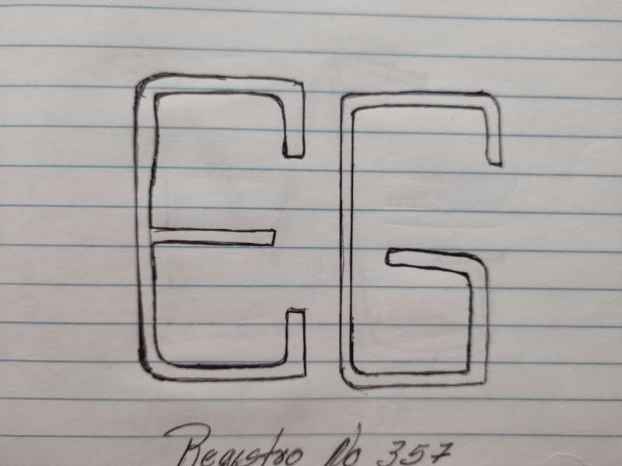 EG
Registro No 357